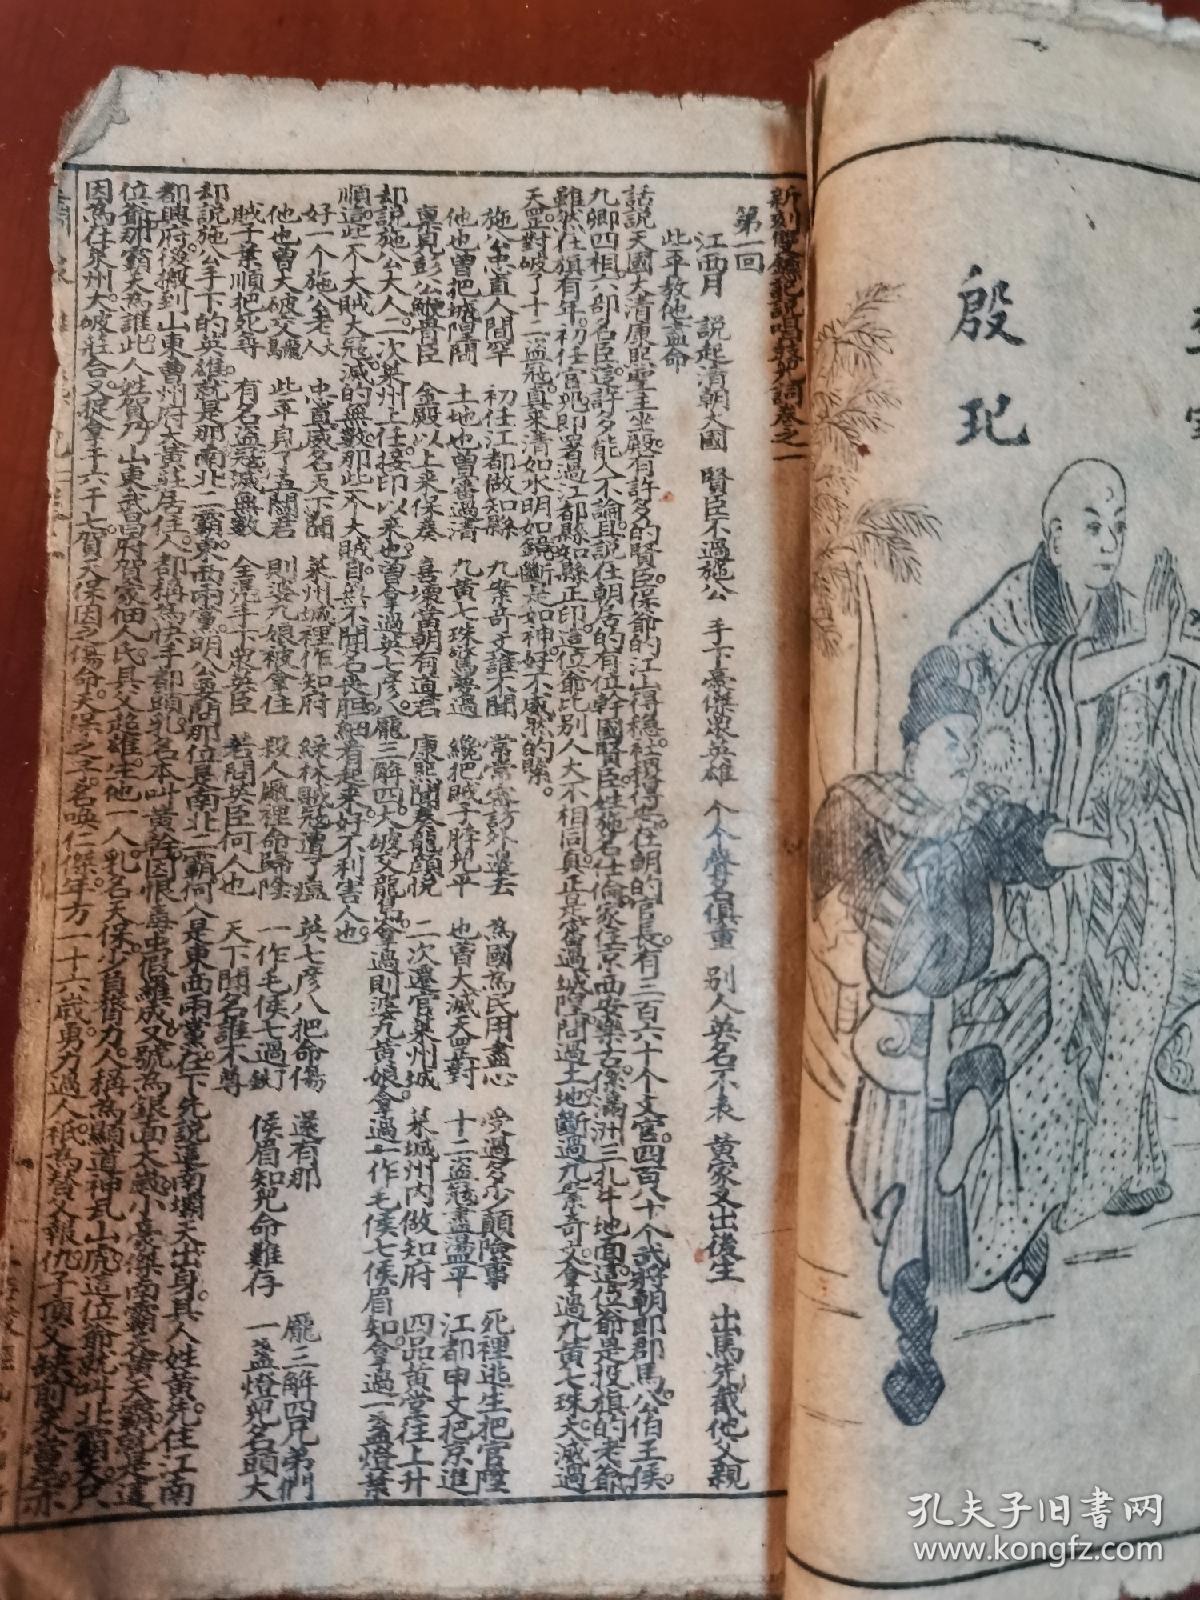 殷玘
第一回
江西月 說起清朝大國 賢臣不過施公 手下豪傑眾英雄 个个聲名俱重 別人英名不表 黃家又出後生 出馬先截他父親
些乎教他盡命
話說天國大清康熙聖主坐殿有許多的賢臣保爺的江山得穩社稷得安在朝的官長有三百六十个文官四百八十个武將朝郎郡馬公伯王侯
九卿四相六部名臣這許多能人不論且說在朝居的有位幹國賢臣姓施名仕倫家住京西安樂古保滿洲三扎牛地面這位爺是投旗的老爺
雖然在旗有年初任官兒即署過江都縣知縣正印這位爺比別人大不相同真正是審過城隍問過土地斷過九案奇文拿過九黃七珠大滅過
天罡對破了十二盜冦真來清如水明如鏡斷
施公忠直人間罕 初任江都做知縣 九案奇文誰不聞 常常密訪外邊去 為國為民用盡心 受過多少顛險事 死裡逃生把官陞
他也曾把城隍問 土地也曾審過清 九黃七珠驚夢過 纔把賊子脖斬平 也曾大滅天罡對 十二盜冦盡盪平 江都申文把京進
禀見彭公 金殿以上來保奏 喜壞當朝有道君 康熙聞奏龍顏悅 二次還官萊州城 萊城州內做知府 四品黃堂往上升
却說施公大人二次萊州上任接印以來也曾拿過英七彥八龐三解四大破叉龍 拿過則婆九黃娘拿過一作毛侯七侯眉知拿過一盞燈葉
順這些不大賊大冦滅的無數那些不大賊自 不聞名喪胆細看起來好不利害人也
好一个施公老大人 忠直威名天下聞 萊州城裡作知府 綠林賊冦遭了瘟 英七彥八把命傷 還有那 龐三解四兄弟們
他也曾大破叉龍 些乎見了五閻君 則婆九娘被拿住 殺人 裡命歸陰 一作毛侯七過 侯眉知兒命難存 一盞燈兒名頭大
賊子葉順把死尋 有名盜冦滅無數 全 手下眾英臣 若問英臣何人也 天下聞名誰不尊
却說施公手下的英雄就是那南北二霸東西兩黨明公 問那位是南北二霸何人是東西兩黨在下先說這南霸天出身其人姓黃先住江南
都興府後搬到山東曹州府大黃莊居住人都稱為快手都頭乳名本叫黃幹因恨毒虫假羅成又號為銀面大 小豪傑南霸天黃天霸就是這
位爺那霸天為誰此人姓賀乃山東武昌府賀家佃人氏其父 雄生他一人乳名天保少負膂力人稱為顯道神 山虎這位爺就叫北霸天只
因為在萊州大破莊台又捉拿于六于七賀天保因之傷命天保之子名喚仁傑年方一十六歲勇力過人祗為替父報仇子頂父缺前來當差
孔夫子旧书网
www.kongfz.com